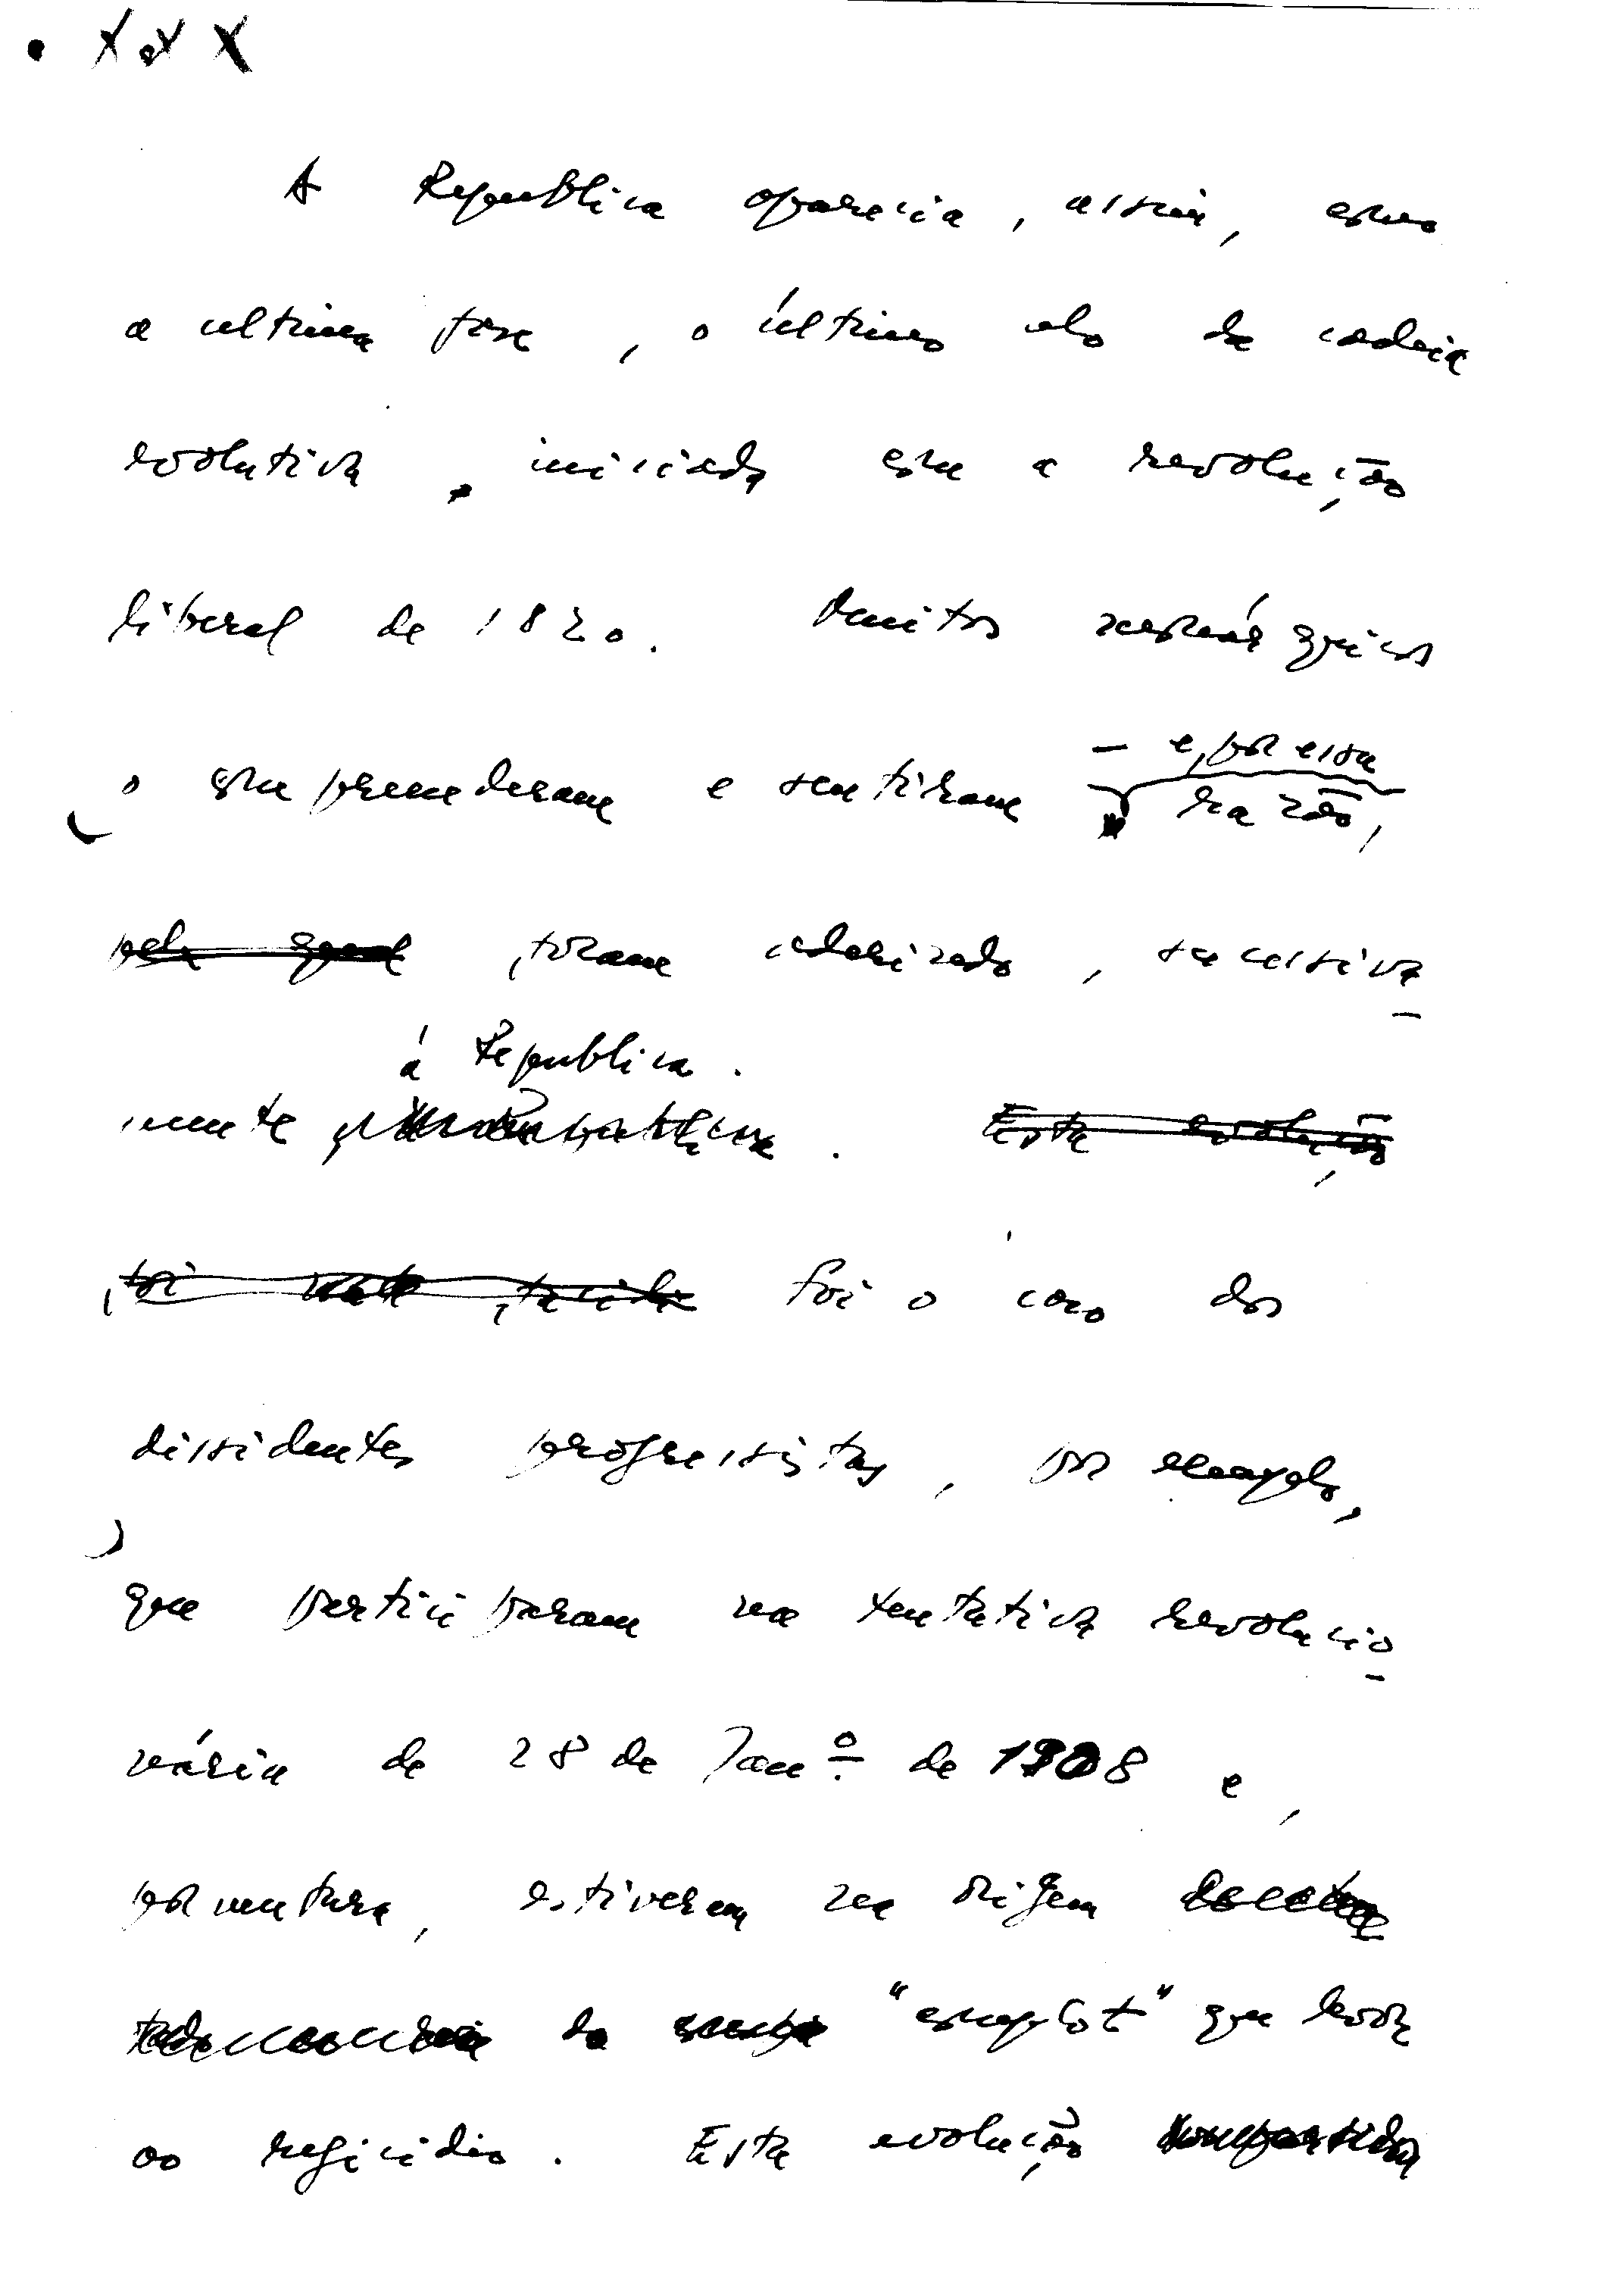 X X X
A Republica aparecia, assim, como
a ultima fase, o último elo da cadeia
evolutiva, iniciada com a revolução
liberal de 1820. Muitos monárquicos
– e, por essa
o compreenderam e sentiram razão,
pela qual foram aderindo, sucessiva-
á Republica.
mente . Esta evolução
foi facili foi o caso dos
dissidentes progressistas, por exemplo,
que participaram na tentativa revolucio-
nária de 28 de Janº. de 1908 e,
porventura, estiveram na origem
do "complot" que levou
ao regicidio. Esta evolução